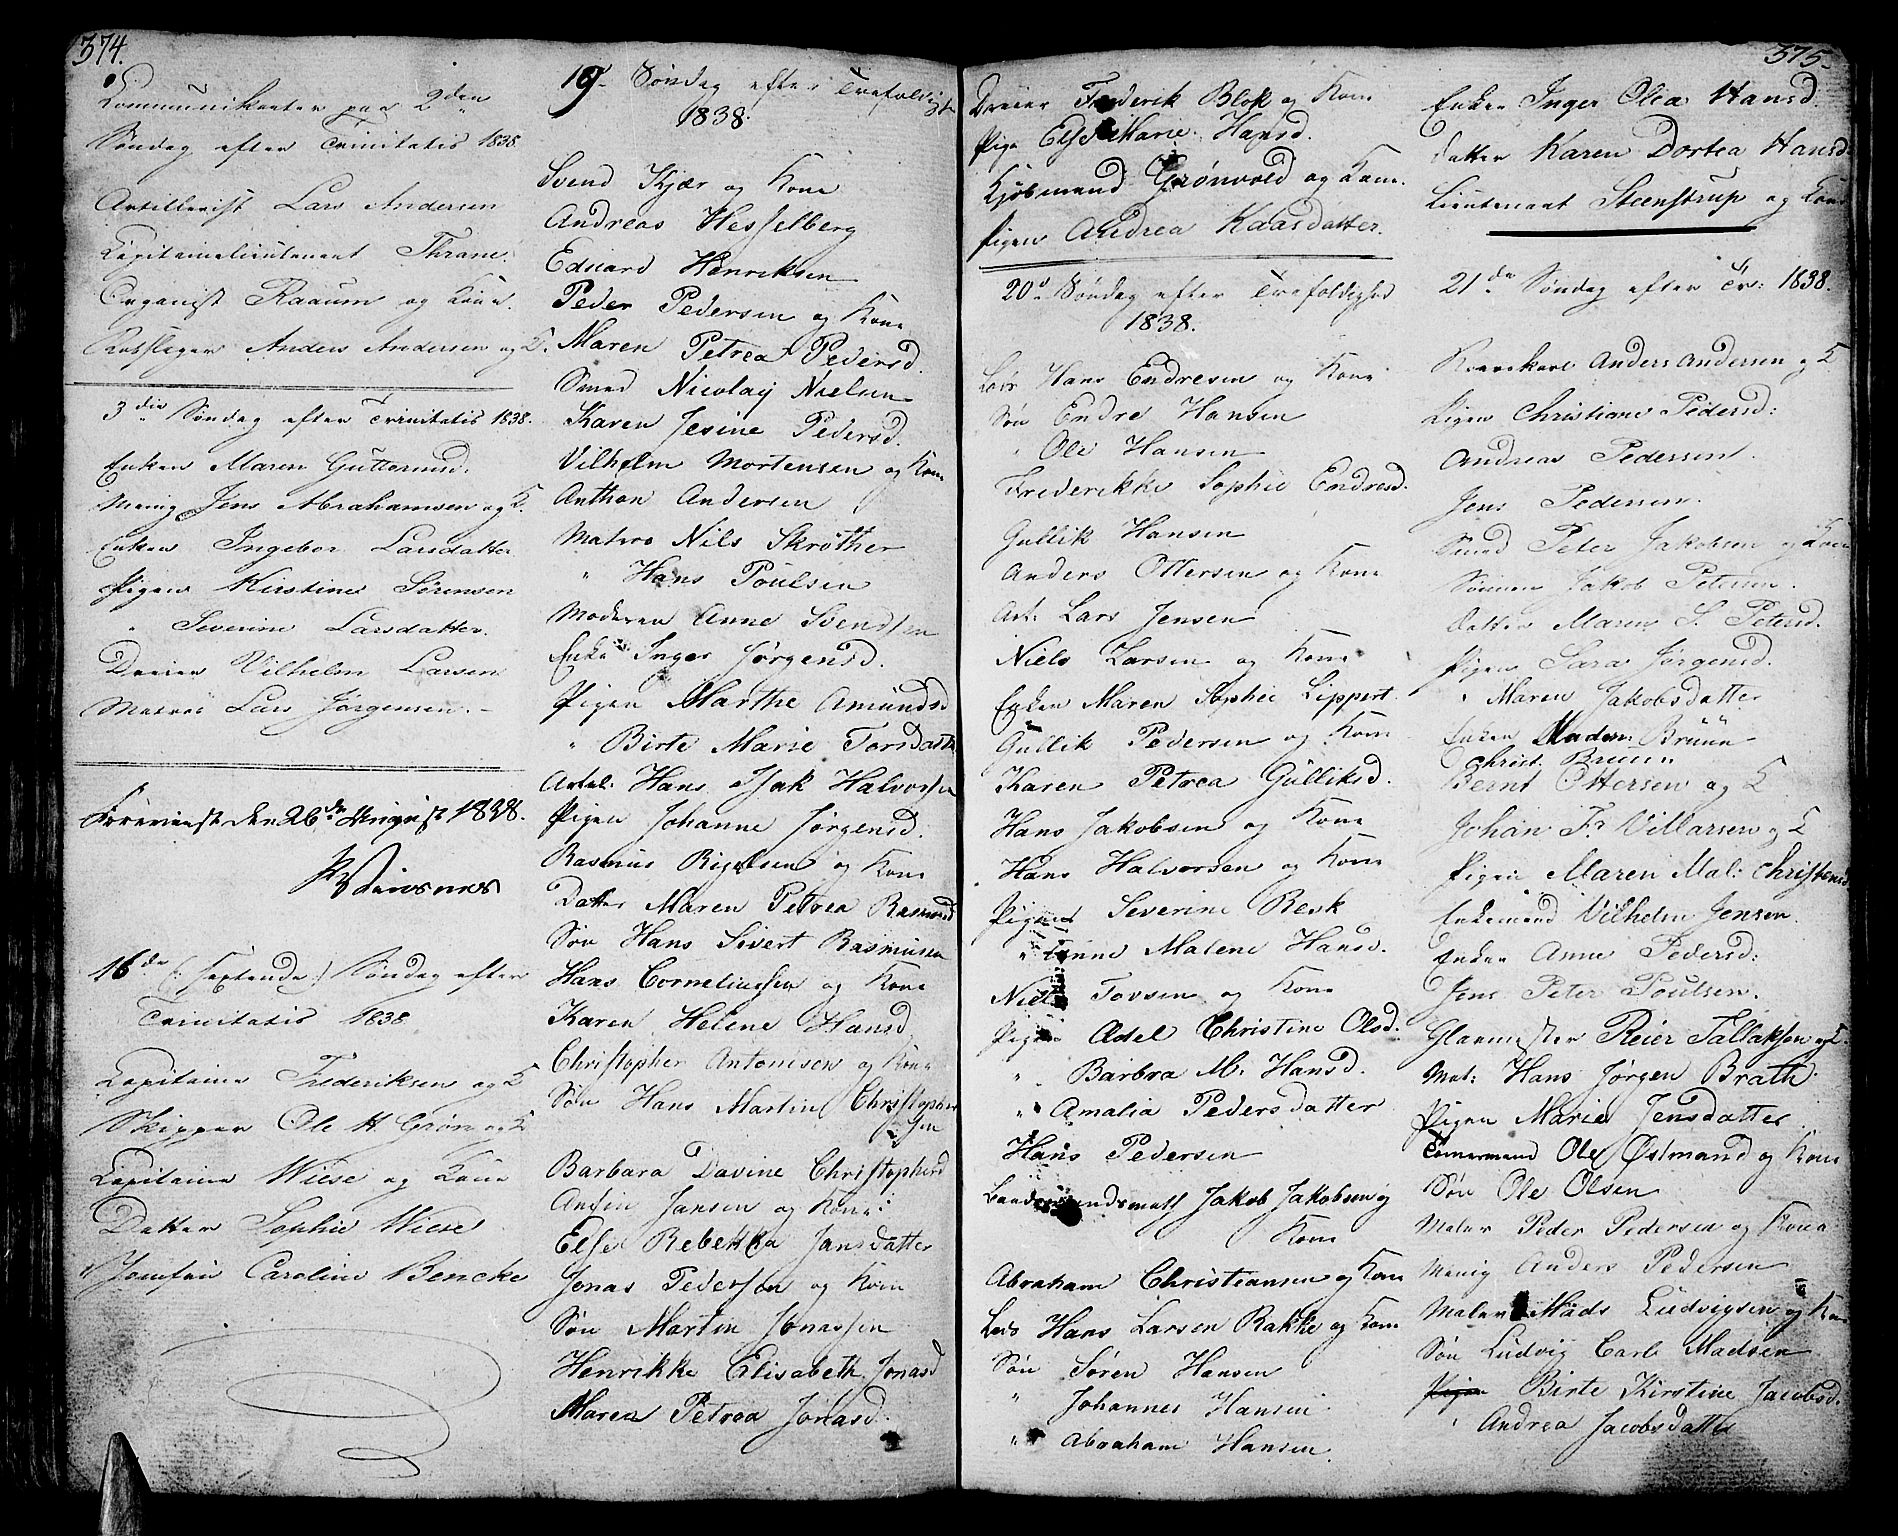 374.
Communikanter paa 2den
Søndag efter Trinitatis 1838.
Artillerist Lars Andersen
Capitainelieutenant Thrane.
Organist Raaum og Kone.
Rebslager Anders Andersen og K.
3die Søndag efter Trinitatis 1838.
Enken Maren Guttormsd.
Menig Jens Abrahamsen og K.
Enken Ingebor Larsdatter
Pigen Kirstine Sørensen
" Severine Larsdatter.
Dreier Vilhelm Larsen
Matros Lars Jørgensen.
den 26de August 1838.
16de (: sextende :) Søndag efter
Trinitatis 1838.
Capitaine Frederiksen og K
Skipper Ole H. Grøn og K
Capitaine Wiese og Kone
Datter Sophie Wiese
Jomfru Caroline Bencke
19. Søndag efter Trefoldigh
1838.
Svend Kjær og Kone
Andreas Hesselberg
Eduard Henriksen
Peder Pedersen og Kone
Maren Petrea Pedersd.
Smed Nicolay Nielsen
Karen Jesine Pedersd.
Vilhelm Mortensen og Kone
Anthon Andersen
Matros Nils Skrøther
" Hans Poulsen
Moderen Anne Svendsen
Enke Inger Jørgensd.
Pigen Marthe Amundsd
" Birte Marie Torsdatte
Artel: Hans Isak Halvorsen
Pigen Johanne Jørgensd.
Rasmus Bigelsen og Kone
Datter Maren Petrea Rasmusd
Søn Hans Sivert Rasmusen
Hans Corneliussen og Kone
Karen Helene Hansd
Christopher Antonisen og Kone
Søn Hans Martin Christopher
sen
Barbara Davine Christophersd
Anfin Jansen og Kone
Else Rebekka Jansdatter
Jonas Pedersen og Kone
Søn Martin Jonassen
Henrikke Elisabeth Jonasd
Maren Petrea Jonasd.
375.
Dreier Frederik Blok og Kone
Pige Else Marie Hansd.
Kjøbmand Grønvold og Kone.
Pigen Andrea Kaasdatter.
20de Søndag efter Trefoldighed
1838.
Lods Hans Endresen og Kone
Søn Endre Hansen
" Ole Hansen
Frederikke Sophie Endresd.
Gullik Hansen
Anders Ottersen og Kone
Art: Lars Jensen
Niels Larsen og Kone
Enken Maren Sophie Lippert.
Gullik Pedersen og Kone
Karen Petrea Gulliksd.
Hans Jakobsen og Kone
Hans Halvorsen og Kone
Pigen Severine Resk
" Malene Hansd.
Niels Tovsen og Kone
Pigen Adel Christine Olsd.
" Barbra M. Hansd.
" Amalia Pedersdatter
Hans Pedersen
Jakob Jakobsen og
Kone
Abraham Christiansen og Kone
Lods Hans Larsen Rakke og Kone
Søn Søren Hansen
" Johannes Hansen
" Abraham Hansen.
Enken Inger Olea Hansd.
Datter Karen Dortea Hansd
Lieutenant Steenstrup og Kone
21de Søndag efter Tr: 1838.
Anders Andersen og K
Pigen Christiane Pedersd:
Andreas Pedersen.
Jens Pedersen.
Smed Peter Jakobsen og Kone
Sønnen Jakob Petersen.
Datter Maren S. Petersd.
Pigen Sara Jørgensd.
" Maren Jakobsdatter
Enken Madm: Bruun
Christ. Bruun
Bernt Ottersen og K
Johan Fr Villarsen og K
Pigen Maren Mal: Christensd
Enkemand Vilhelm Jensen.
Enken Anne Pedersd:
Jens Peter Poulsen.
Glarmester Reier Tallaksen og K.
Mat: Hans Jørgen Brath.
Pigen Marie Jensdatter
Tømermand Ole Østmand og Kone
Søn Ole Olsen
Maler Peder Pedersen og Kone
Menig Anders Pedersen
Maler Mads Ludvigsen og Kone
Søn Ludvig Carl Madsen
Pigen Birte Kirstine Jacobsd.
" Andrea Jacobsdatter